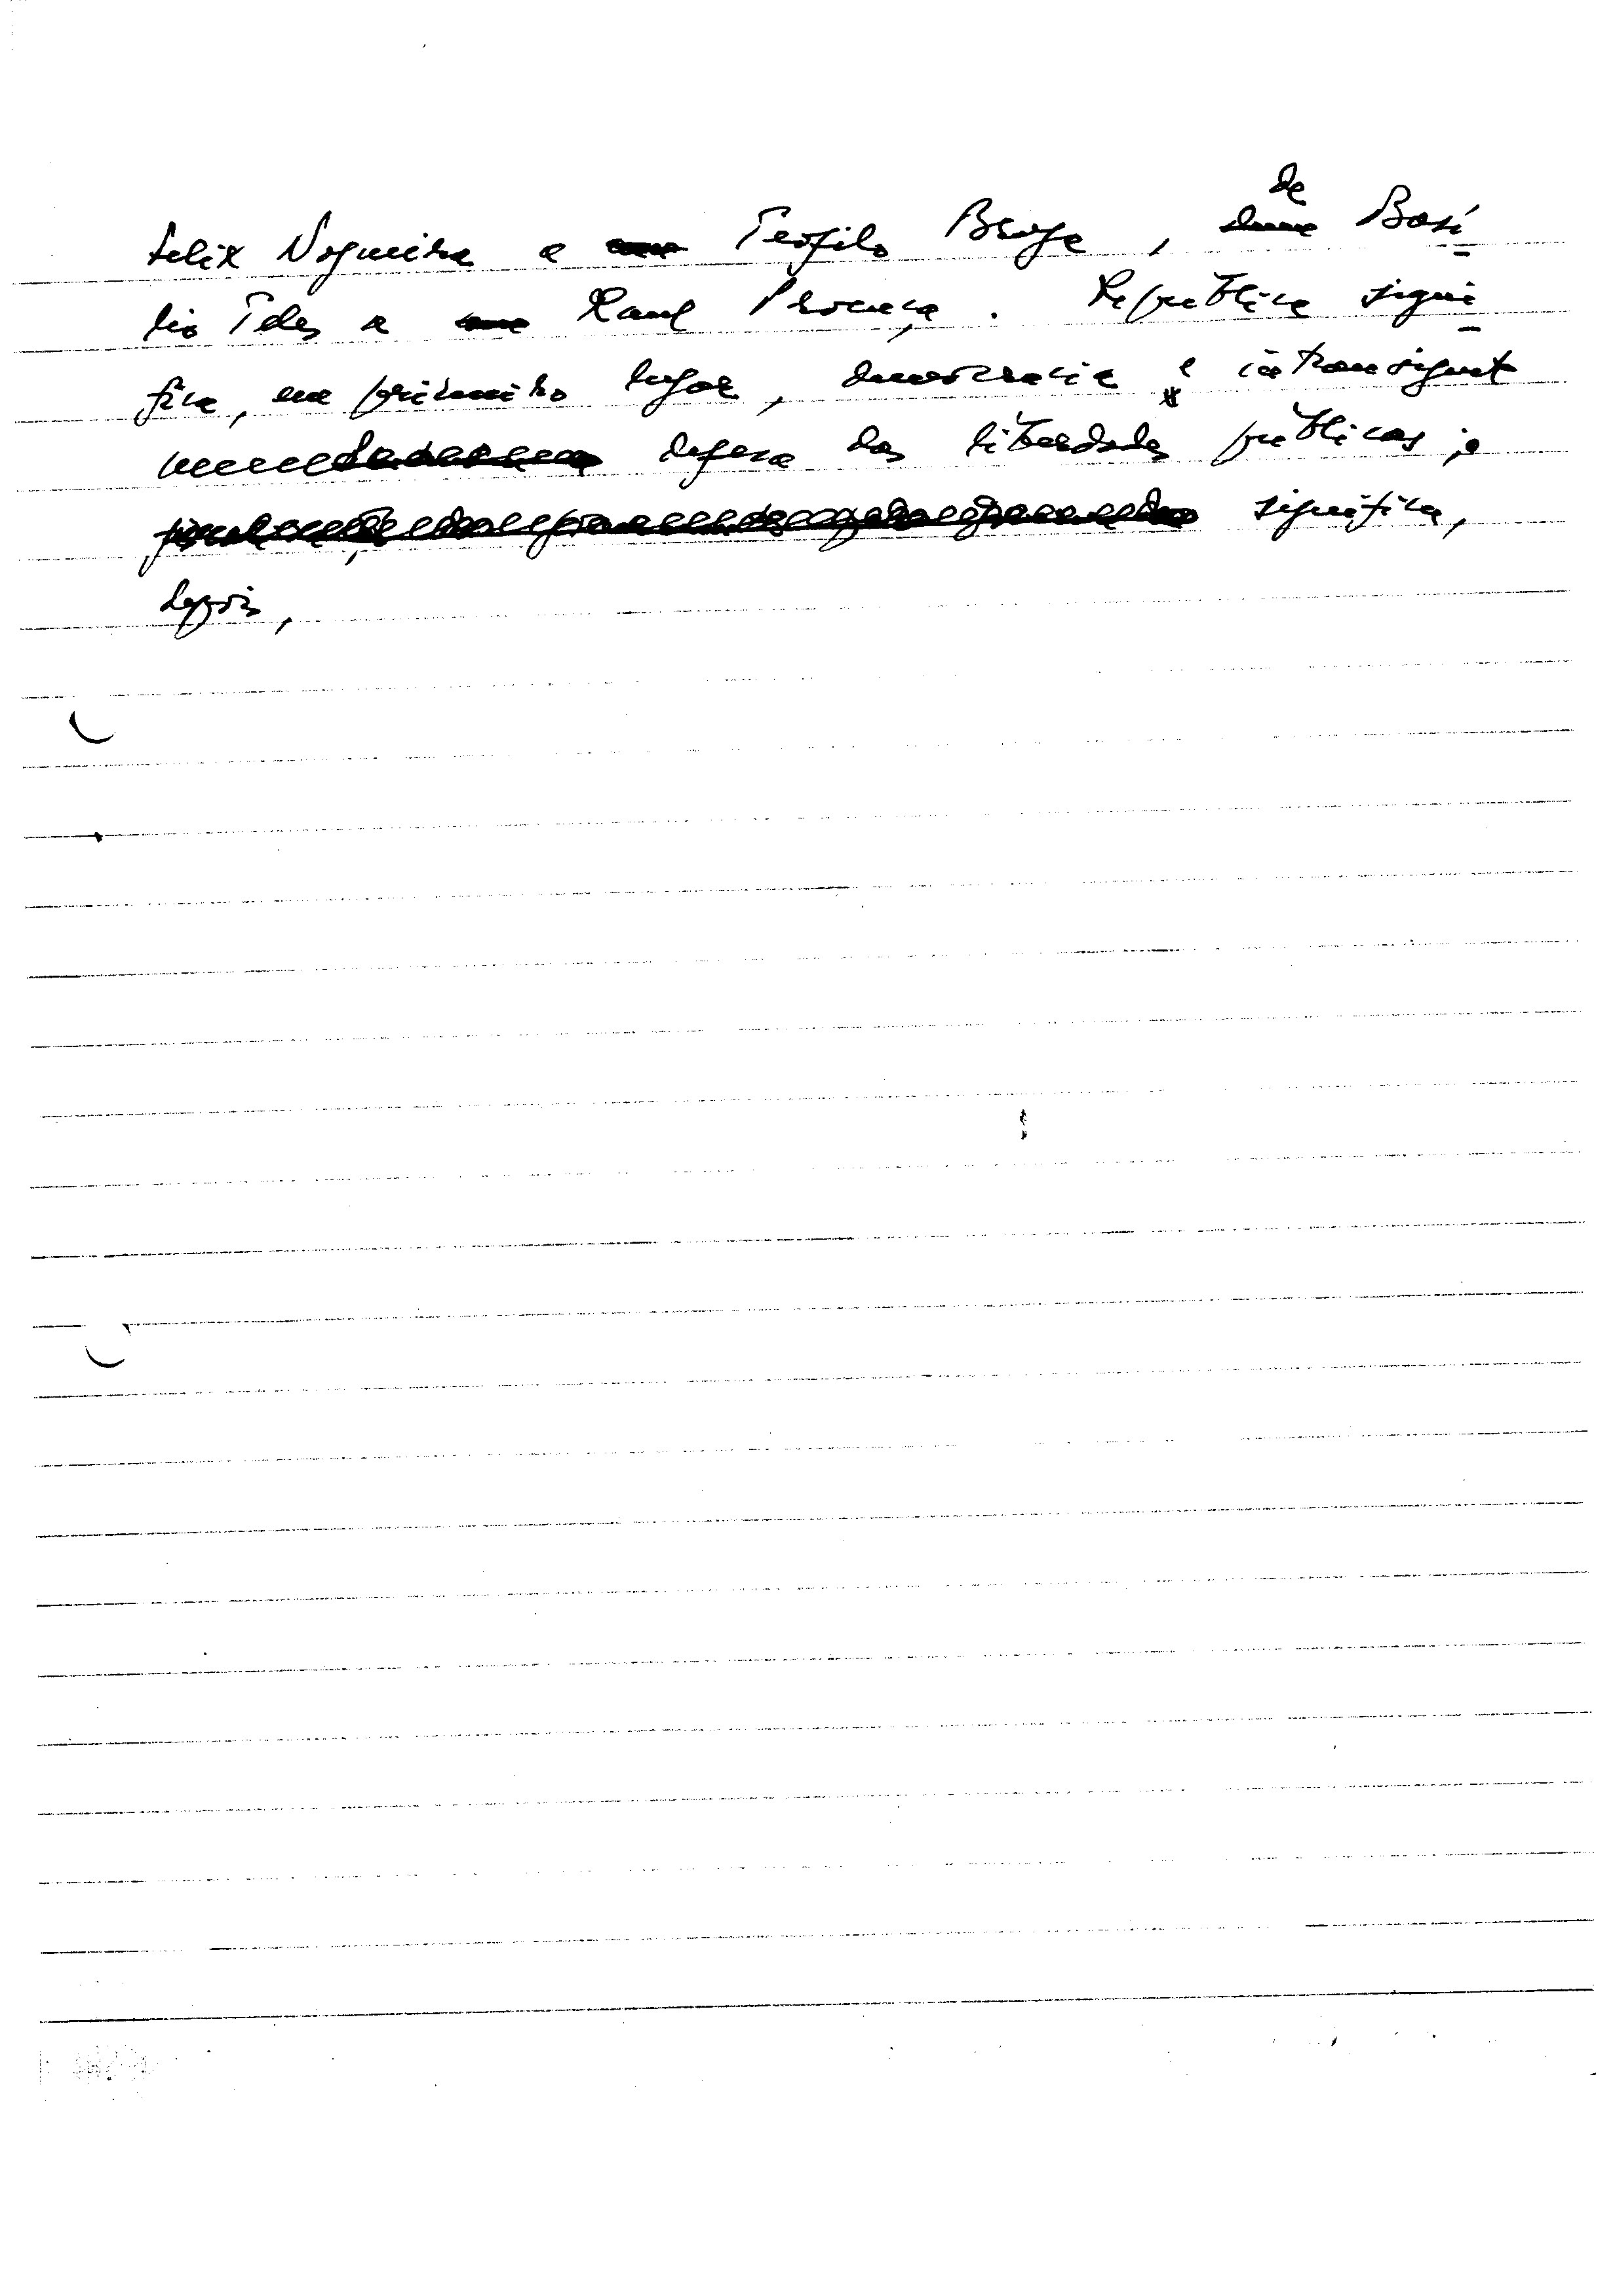 Felix Nogueira a Teofilo Braga, de Basi
lio Teles a Raul Proença. Republica signi
fica, em primeiro lugar, democracia e intransigente
defesa das liberdades publicas; e
significa,
depois,